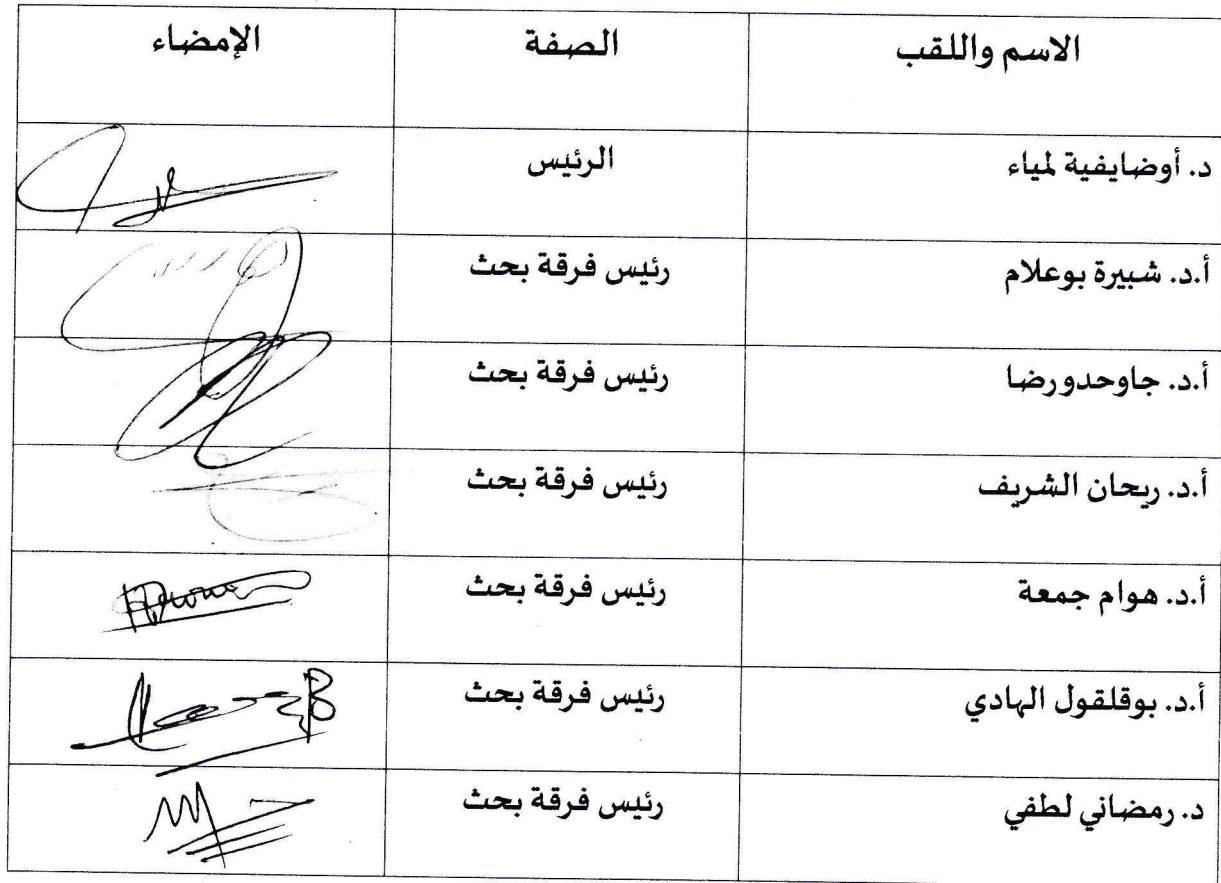 الاسم واللقب الصفة الإمضاء
د. أوضايفية لمياء الرئيس
أ.د. شبيرة بوعلام رئيس فرقة بحث
أ.د. جاوحدورضا رئيس فرقة بحث
أ.د. ريحان الشريف رئيس فرقة بحث
أ.د. هوام جمعة رئيس فرقة بحث
أ.د. بوقلقول الهادي رئيس فرقة بحث
د. رمضاني لطفي رئيس فرقة بحث